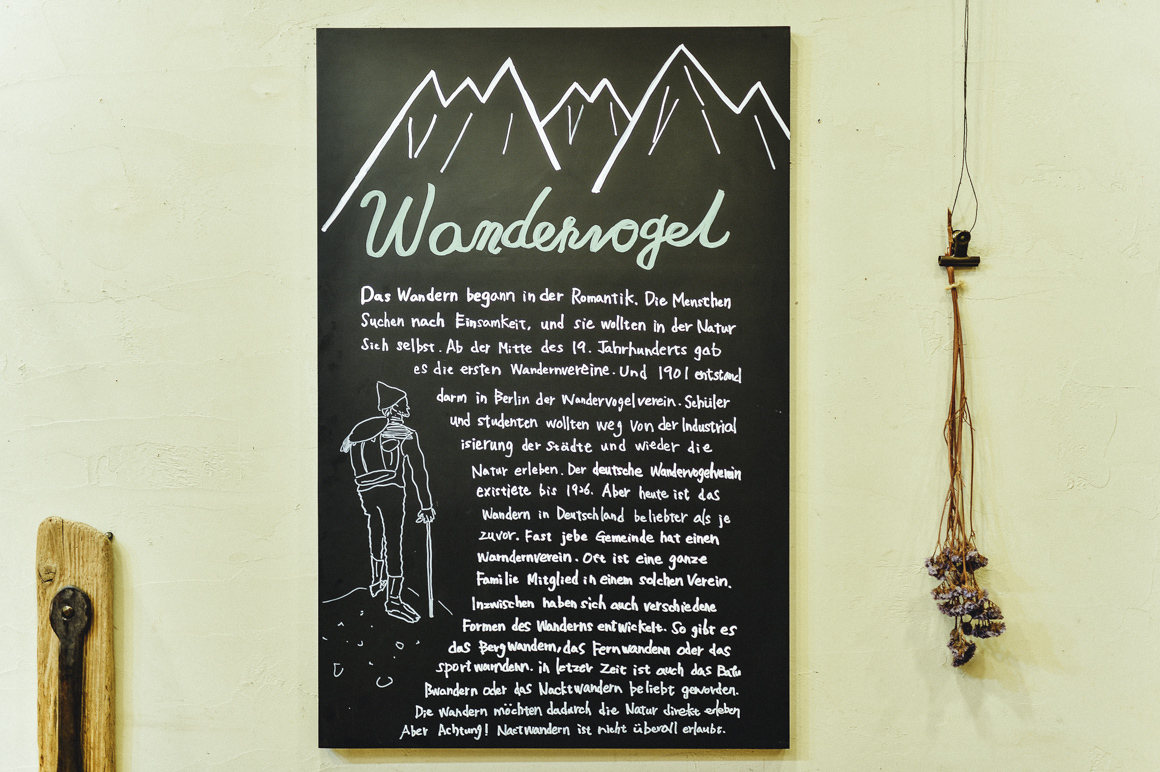 Wandervogel
Das Wandern begann in der Romantik. Die Menschen
Suchen nach Einsamkeit, und sie wollten in der Natur
Sich selbst. Ab der Mitte des 19. Jahrhunderts gab
es die ersten Wandernvereine. Und 1901 entstand
darm in Berlin der Wandervogelverein. Schüler
und studenten wollten weg von der Industrial
isierung der Städte und wieder die
Natur erleben. Der deutsche Wandervogelverein
existiete bis 1936. Aber heute ist das
Wandern in Deutschland beliebter als je
zuvor. Fast jebe Gemeinde hat einen
Warndernverein. Oft ist eine ganze
Familie Mitglied in einem solchen Verein.
Inzwischen haben sich auch verschiedene
Formen des Wanderns entwickelt. So gibt es
das Bergwandern, das Fernwandern oder das
sportwandern. in letzer Zeit ist auch das
Bwandern oder das Nacktwandern beliebt geworden.
Die Wandern möchten dadurch die Natur direkt erleben
Aber Achtung! Nactwandern ist nicht überall erlaubt.